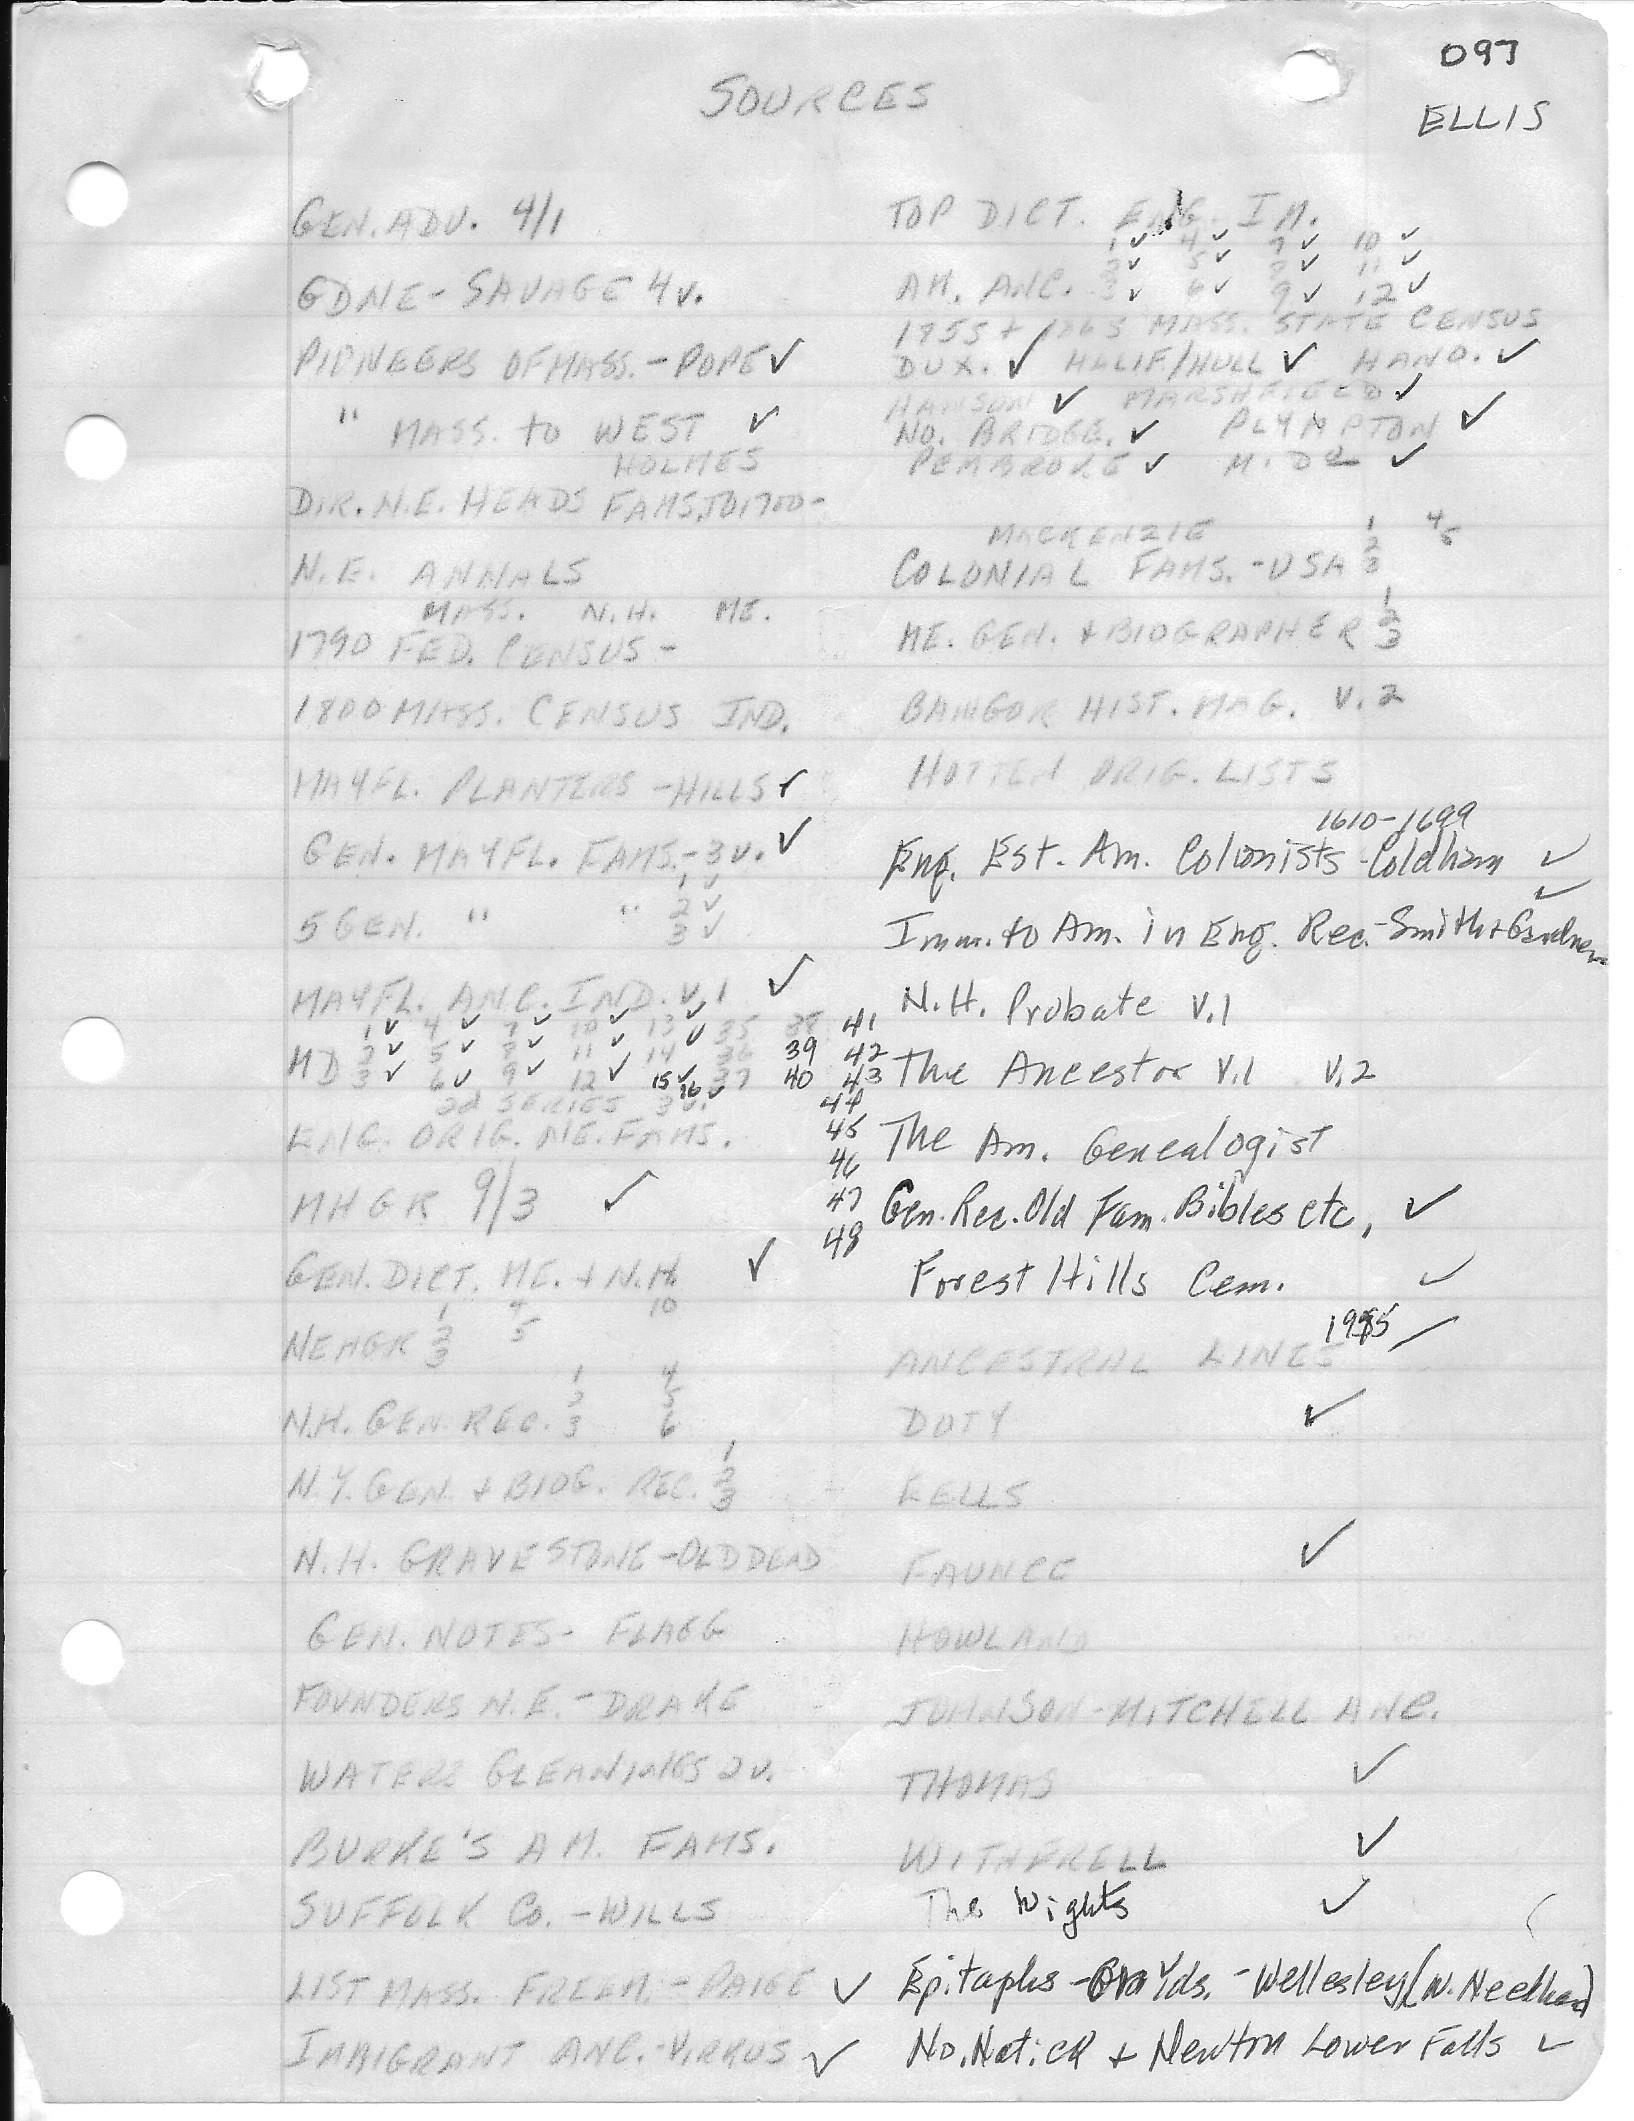 097
ELLIS
SOURCES
GEN. ADV. 4/1
GDNE - SAVAGE 4v.
PIONEERS OF MASS. - POPE ✓
" MASS. to WEST ✓
HOLMES
DIR. N.E. HEADS FAMS. TO 1700 -
N.E. ANNALS
MASS. N.H. ME.
1790 FED. CENSUS -
1800 MASS. CENSUS IND.
MAYFL. PLANTERS - HILLS ✓
GEN. MAYFL. FAMS. - 3v. ✓
1 ✓
5 GEN. " " 2 ✓
3 ✓
MAYFL. ANC. IND. v.1 ✓
1 ✓ 4 ✓ 7 ✓ 10 ✓ 13 ✓ 35 38 41
MD 2 ✓ 5 ✓ 8 ✓ 11 ✓ 14 ✓ 36 39 42
3 ✓ 6 ✓ 9 ✓ 12 ✓ 15 ✓ 37 40 43
16 ✓
2d SERIES 3v. 44
ENG. ORIG. NE. FAMS. 45
46
MHGR 9/3 ✓ 47
48
GEN. DICT. ME. + N.H. ✓
1 4 10
NEHGR 2 5
3
1 4
2 5
N.H. GEN. REC. 3 6
1
N.Y. GEN. + BIOG. REC. 2
3
N.H. GRAVESTONE - OLD DEAD
GEN. NOTES - FLAGG
FOUNDERS N.E. - DRAKE
WATERS GLEANINGS 2v.
BURKE'S AM. FAMS.
SUFFOLK CO. - WILLS
LIST MASS. FREEM. - PAIGE ✓
IMMIGRANT ANC. - VIRKUS ✓
TOP DICT. ENG. IM.
1 ✓ 4 ✓ 7 ✓ 10 ✓
2 ✓ 5 ✓ 8 ✓ 11 ✓
AM. ANC. 3 ✓ 6 ✓ 9 ✓ 12 ✓
1855 + 1865 MASS. STATE CENSUS
DUX. ✓ HALIF/HULL ✓ HANO. ✓
HANSON ✓ MARSHFIELD ✓
NO. BRIDGE. ✓ PLYMPTON ✓
PEMBROKE ✓ ✓
MACKENZIE 1 4
2 5
COLONIAL FAMS. - USA 3
1
2
ME. GEN. + BIOGRAPHER 3
BANGOR HIST. MAG. V. 2
HOTTEN ORIG. LISTS
1610-1699
Eng. Est. Am. Colonists - Coldham ✓
✓
Imm. to Am. in Eng. Rec. - Smith + Gardner
N.H. Probate v.1
The Ancestor v.1 v.2
The Am. Genealogist
Gen. Rec. Old Fam. Bibles etc, ✓
Forest Hills Cem. ✓
1985
ANCESTRAL LINES ✓
DOTY ✓
EELLS
FAUNCE ✓
HOWLAND
JOHNSON - MITCHELL ANC.
THOMAS ✓
WITHERELL ✓
The Wights ✓
Epitaphs - Yds. - Wellesley (W. Needham)
No. Natick + Newton Lower Falls ✓